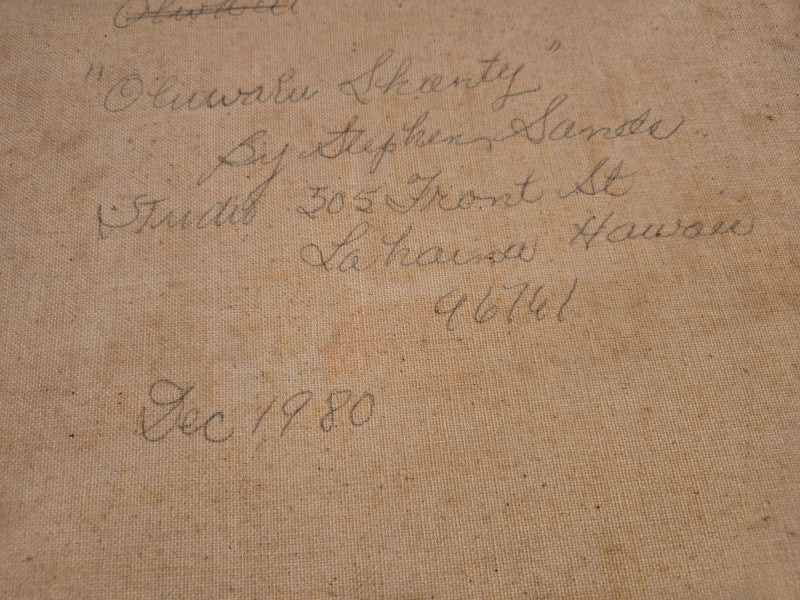 "Oluwalu Shanty"
By Stephen Sands
Studio 505 Front St
Lahaina Hawaii
96761
Dec 1980